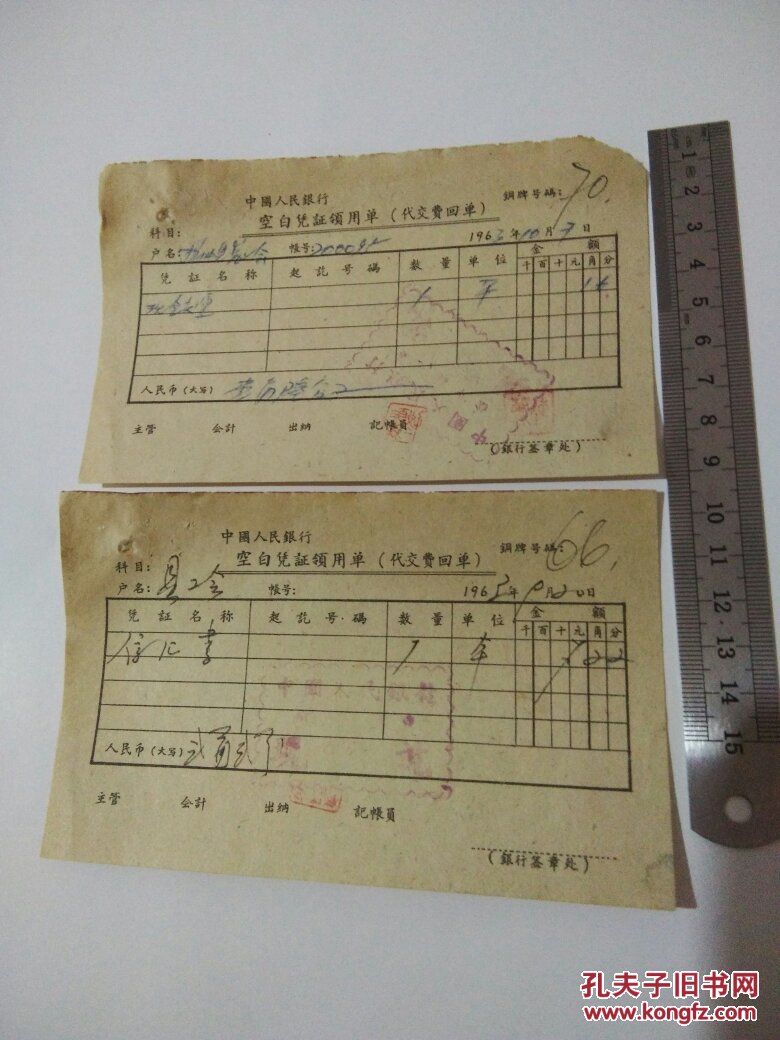 中國人民銀行
空白凭証領用单（代交費回单）
銅牌号碼： 70.
科目：
1963年10月7日
户名：
帳号：
凭証名称 起訖号碼 数量 单位 金額
千百十元角分
1 本 16
人民币（大写） 壹角陸分
主管 会計 出纳 記帳員
（銀行签章处）
中國人民銀行
空白凭証領用单（代交費回单）
銅牌号碼： 66.
科目：
户名： 县工会
帳号：
1963年 月20日
凭証名称 起訖号碼 数量 单位 金額
千百十元角分
信汇書 1 本 22
中國人民銀行
人民币（大写） 弍角弍分
主管 会計 出纳 記帳員
（銀行签章处）
1 2 3 4 5 6 7 8 9 10 11 12 13 14 15
孔夫子旧书网
www.kongfz.com